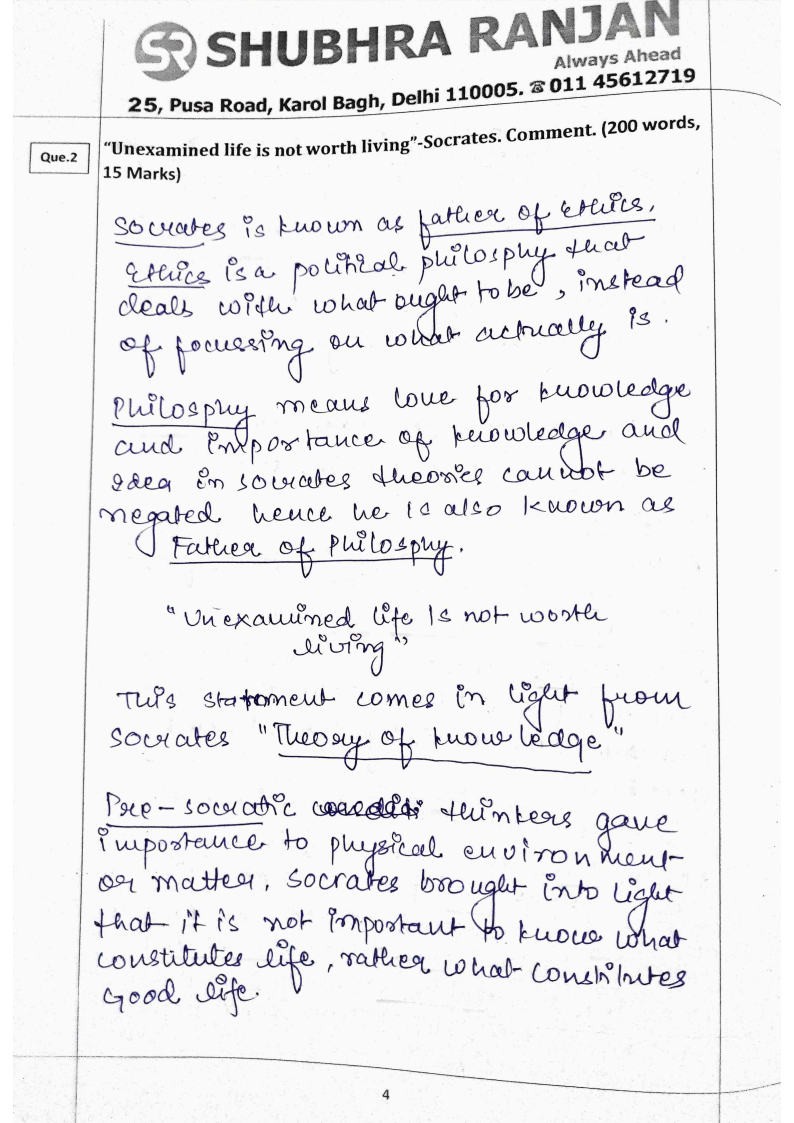 SR SHUBHRA RANJAN
Always Ahead
25, Pusa Road, Karol Bagh, Delhi 110005. ☎ 011 45612719
Que.2
"Unexamined life is not worth living"-Socrates. Comment. (200 words,
15 Marks)
Socrates is known as father of Ethics.
Ethics is a political philosphy that
deals with what ought to be, instead
of focussing on what actually is.
Philosphy means love for knowledge
and importance of knowledge and
idea in socrates theories cannot be
negated hence he is also known as
Father of Philosphy.
"Unexamined life is not worth
living"
This statement comes in light from
Socrates "Theory of knowledge"
Pre-socratic thinkers gave
importance to physical environment
or matter, Socrates brought into light
that it is not important to know what
constitutes life, rather what constitutes
Good life.
4